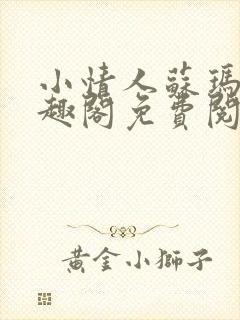 小情人蘇瑪
趣閣免費閱
黃金小獅子